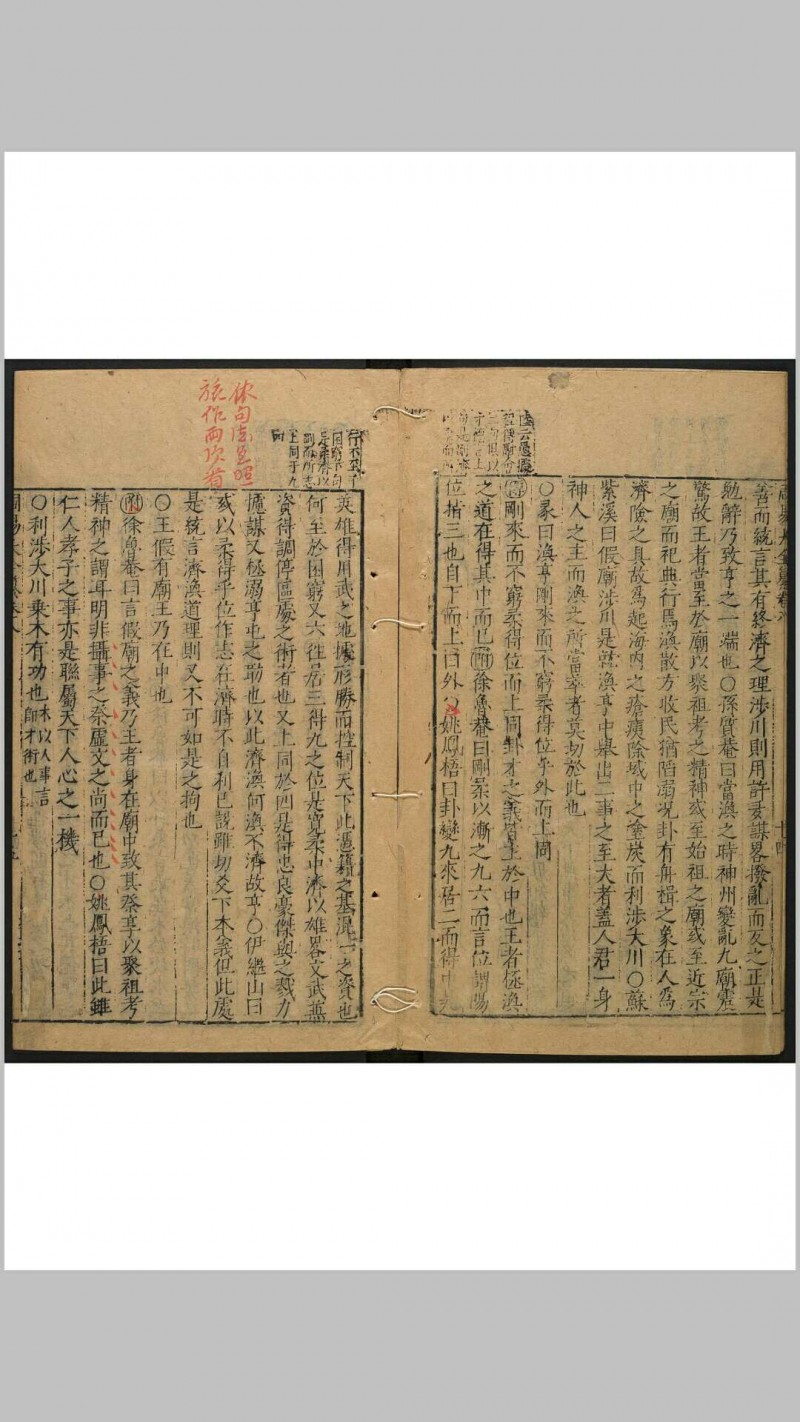 善而統言其有終濟之理涉川則用許多謀畧撥亂而反之正是
勉辭乃致亨之一端也○孫質菴曰當渙之時神州變亂九廟震
驚故王者當至於廟以聚祖考之精神或至始祖之廟或至近宗
之廟而祀典行焉渙散方收民猶陷溺况卦有舟楫之象在人爲
濟險之具故爲起海内之瘡痍除域中之塗炭而利涉大川○蘇
紫溪曰假廟涉川是當渙亨中舉出二事之至大者蓋人君一身
神人之主而渙之所當萃者莫切於此也
○彖曰渙亨剛來而不窮柔得位乎外而上同
剛來而不窮柔得位而上同卦才之義皆主於中也王者拯渙
之道在得其中而已附徐魯菴曰剛柔以漸之九六而言位謂陽
位指三也自下而上曰外○姚鳳梧曰卦變九來居二而得中
英雄得用武之地據形勝而控制天下此憑藉之基混一之資也
何至於困窮又六往居三得九之位是寬柔中濟以雄畧文武兼
資得調停區處之術者也又上同於四是得忠良豪傑與之戮力
擄謀又拯溺亨屯之助也以此濟渙何渙不濟故亨○伊繼山曰
或以柔得乎位作志在濟時不自利已說雖切爻下本義但此處
是統言濟渙道理則又不可如是之拘也
○王假有廟王乃在中也
附徐魯菴曰言假廟之義乃王者身在廟中致其祭享以聚祖考
精神之謂耳明非攝事之祭虛文之尚而已也○姚鳳梧曰此雖
仁人孝子之事亦是聯屬天下人心之一機
○利涉大川乘木有功也木以人事言
師才術也
依句法
旅作兩次看